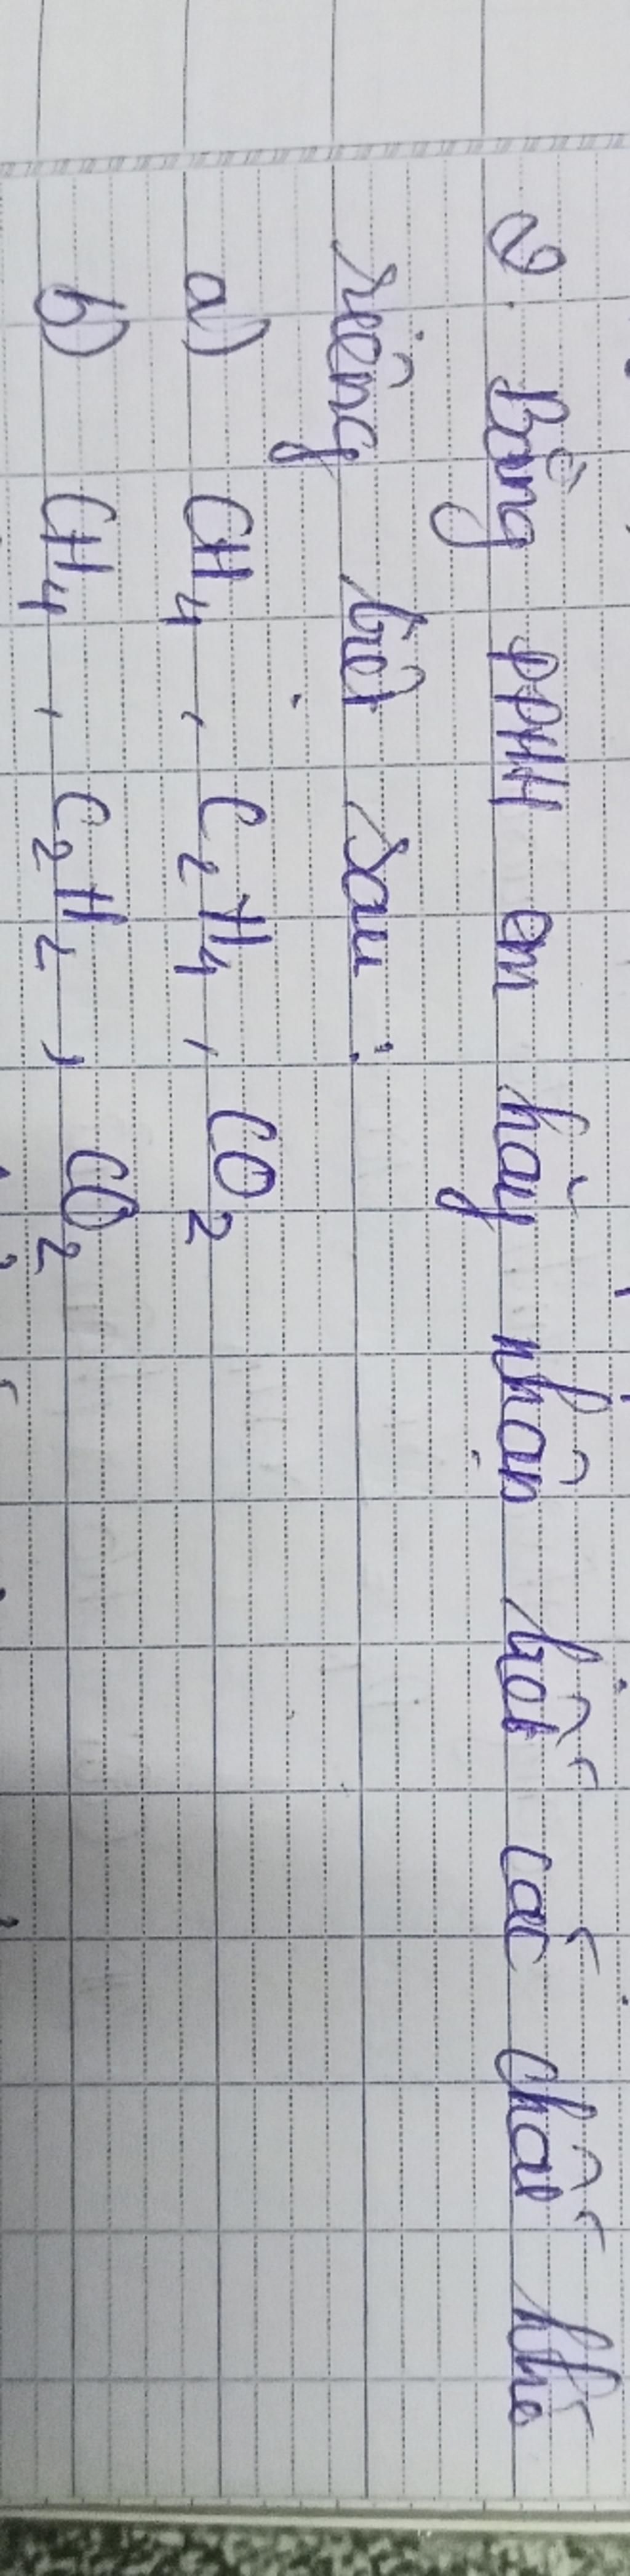 2. Bằng PPHH em hãy nhận biết các chất khí
riêng biệt sau:
a) CH4, C2H4, CO2
b) CH4, C2H2, CO2